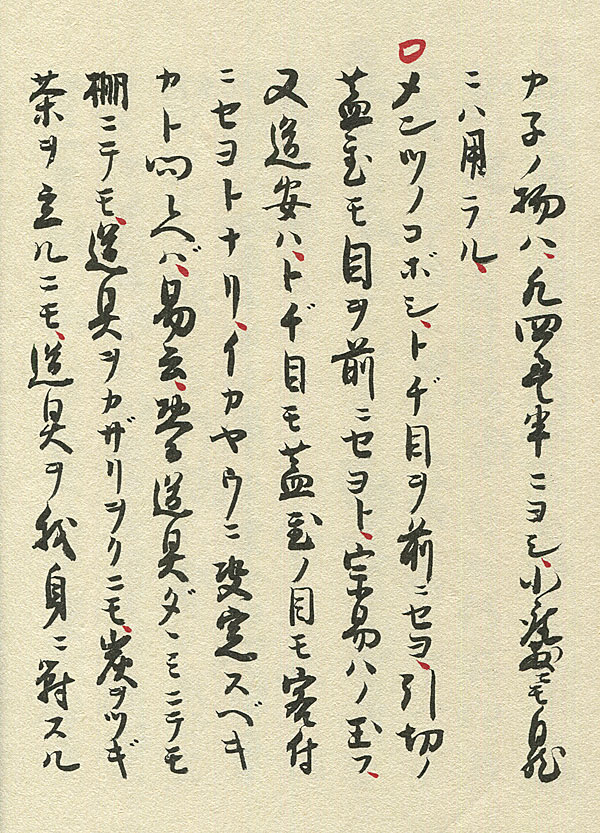 カ子ノ物ハ、凡四畳半ニヨシ、小座敷ニモ自然
ニハ用ラル、
〇メンツノコボシ、トヂ目ヲ前ニセヨ、引切ノ
蓋置モ目ヲ前ニセヨト、宗易ハノ玉フ、
又道安ハ、トヂ目モ蓋置ノ目モ客付
ニセヨトナリ、イカヤウニ決定スベキ
カト問候ヘバ、易云、道具ダヽミニテモ
棚ニテモ、道具ヲカザリヲクニモ、炭ヲツギ
茶ヲ立ルニモ、道具ヲ我身ニ対スル